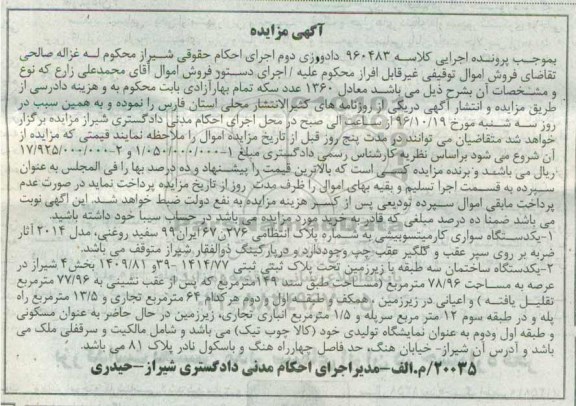 آگهی مزایده
بموجب پرونده اجرایی کلاسه ۹۶۰۴۸۳ دادورزی دوم اجرای احکام حقوقی شیراز محکوم له غزاله صالحی
تقاضای فروش اموال توقیفی غیرقابل افراز محکوم علیه / اجرای دستور فروش اموال آقای محمدعلی زارع که نوع
و مشخصات آن بشرح ذیل می باشد معادل ۱۳۶۰ عدد سکه تمام بهارآزادی بابت محکوم به و هزینه دادرسی از
طریق مزایده و انتشار آگهی دریکی از روزنامه های کثیرالانتشار محلی استان فارس را نموده و به همین سبب در
روز سه شنبه مورخ ۹۶/۱۰/۱۹ از ساعت الی صبح در محل اجرای احکام مدنی دادگستری شیراز مزایده برگزار
خواهد شد متقاضیان می توانند در مدت پنج روز قبل از تاریخ مزایده اموال را ملاحظه نمایند قیمتی که مزایده از
آن شروع می شود براساس نظریه کارشناس رسمی دادگستری مبلغ ۱-۱/۰۵۰/۰۰۰/۰۰۰ و ۲-۱۷/۹۲۵/۰۰۰/۰۰۰
ریال می باشد و برنده مزایده کسی است که بالاترین قیمت را پیشنهاد و ده درصد بها را فی المجلس به عنوان
سپرده به قسمت اجرا تسلیم و بقیه بهای اموال را ظرف مدت روز از تاریخ مزایده پرداخت نماید در صورت عدم
پرداخت مابقی اموال سپرده تودیعی پس از کسر هزینه مزایده به نفع دولت ضبط خواهد شد. این آگهی نوبت
می باشد ضمنا ده درصد مبلغی که قادر به خرید مورد مزایده می باشد در حساب سیبا خود داشته باشید.
۱-یکدستگاه سواری کارمیتسوبیسی به شماره پلاک انتظامی ۲۷۶ن۶۷ایران۹۹ سفید روغنی، مدل ۲۰۱۴ آثار
ضربه بر روی سپر عقب و گلگیر عقب چپ وجوددارد و درپارکینگ ذوالفقار شیراز متوقف می باشد.
۲-یکدستگاه ساختمان سه طبقه با زیرزمین تحت پلاک ثبتی ثبتی ۱۴۱۴/۷۷ -۳۹و ۱۴۰۹/۸۱ بخش۴ شیراز در
عرصه به مساحت ۷۸/۹۶ مترمربع (مساحت طبق سند ۱۴۹مترمربع که پس از عقب نشینی به ۷۷/۹۶ مترمربع
تقلیل یافته ) و اعیانی در زیرزمین ، همکف ، طبقه اول و دوم هرکدام ۶۴ مترمربع تجاری و ۱۳/۵ مترمربع راه
پله و در طبقه سوم ۱۲ متر مربع سرپله و ۱/۵ مترمربع انباری تجاری، زیرزمین در حال حاضر به عنوان مسکونی
و طبقه اول ودوم به عنوان نمایشگاه تولیدی خود (کالا چوب تیک) می باشد و شامل مالکیت و سرقفلی ملک می
باشد و آدرس آن شیراز- خیابان هنگ، حد فاصل چهارراه هنگ و باسکول نادر پلاک ۸۱ می باشد.
۲۰۰۳۵/م.الف-مدیراجرای احکام مدنی دادگستری شیراز-حیدری